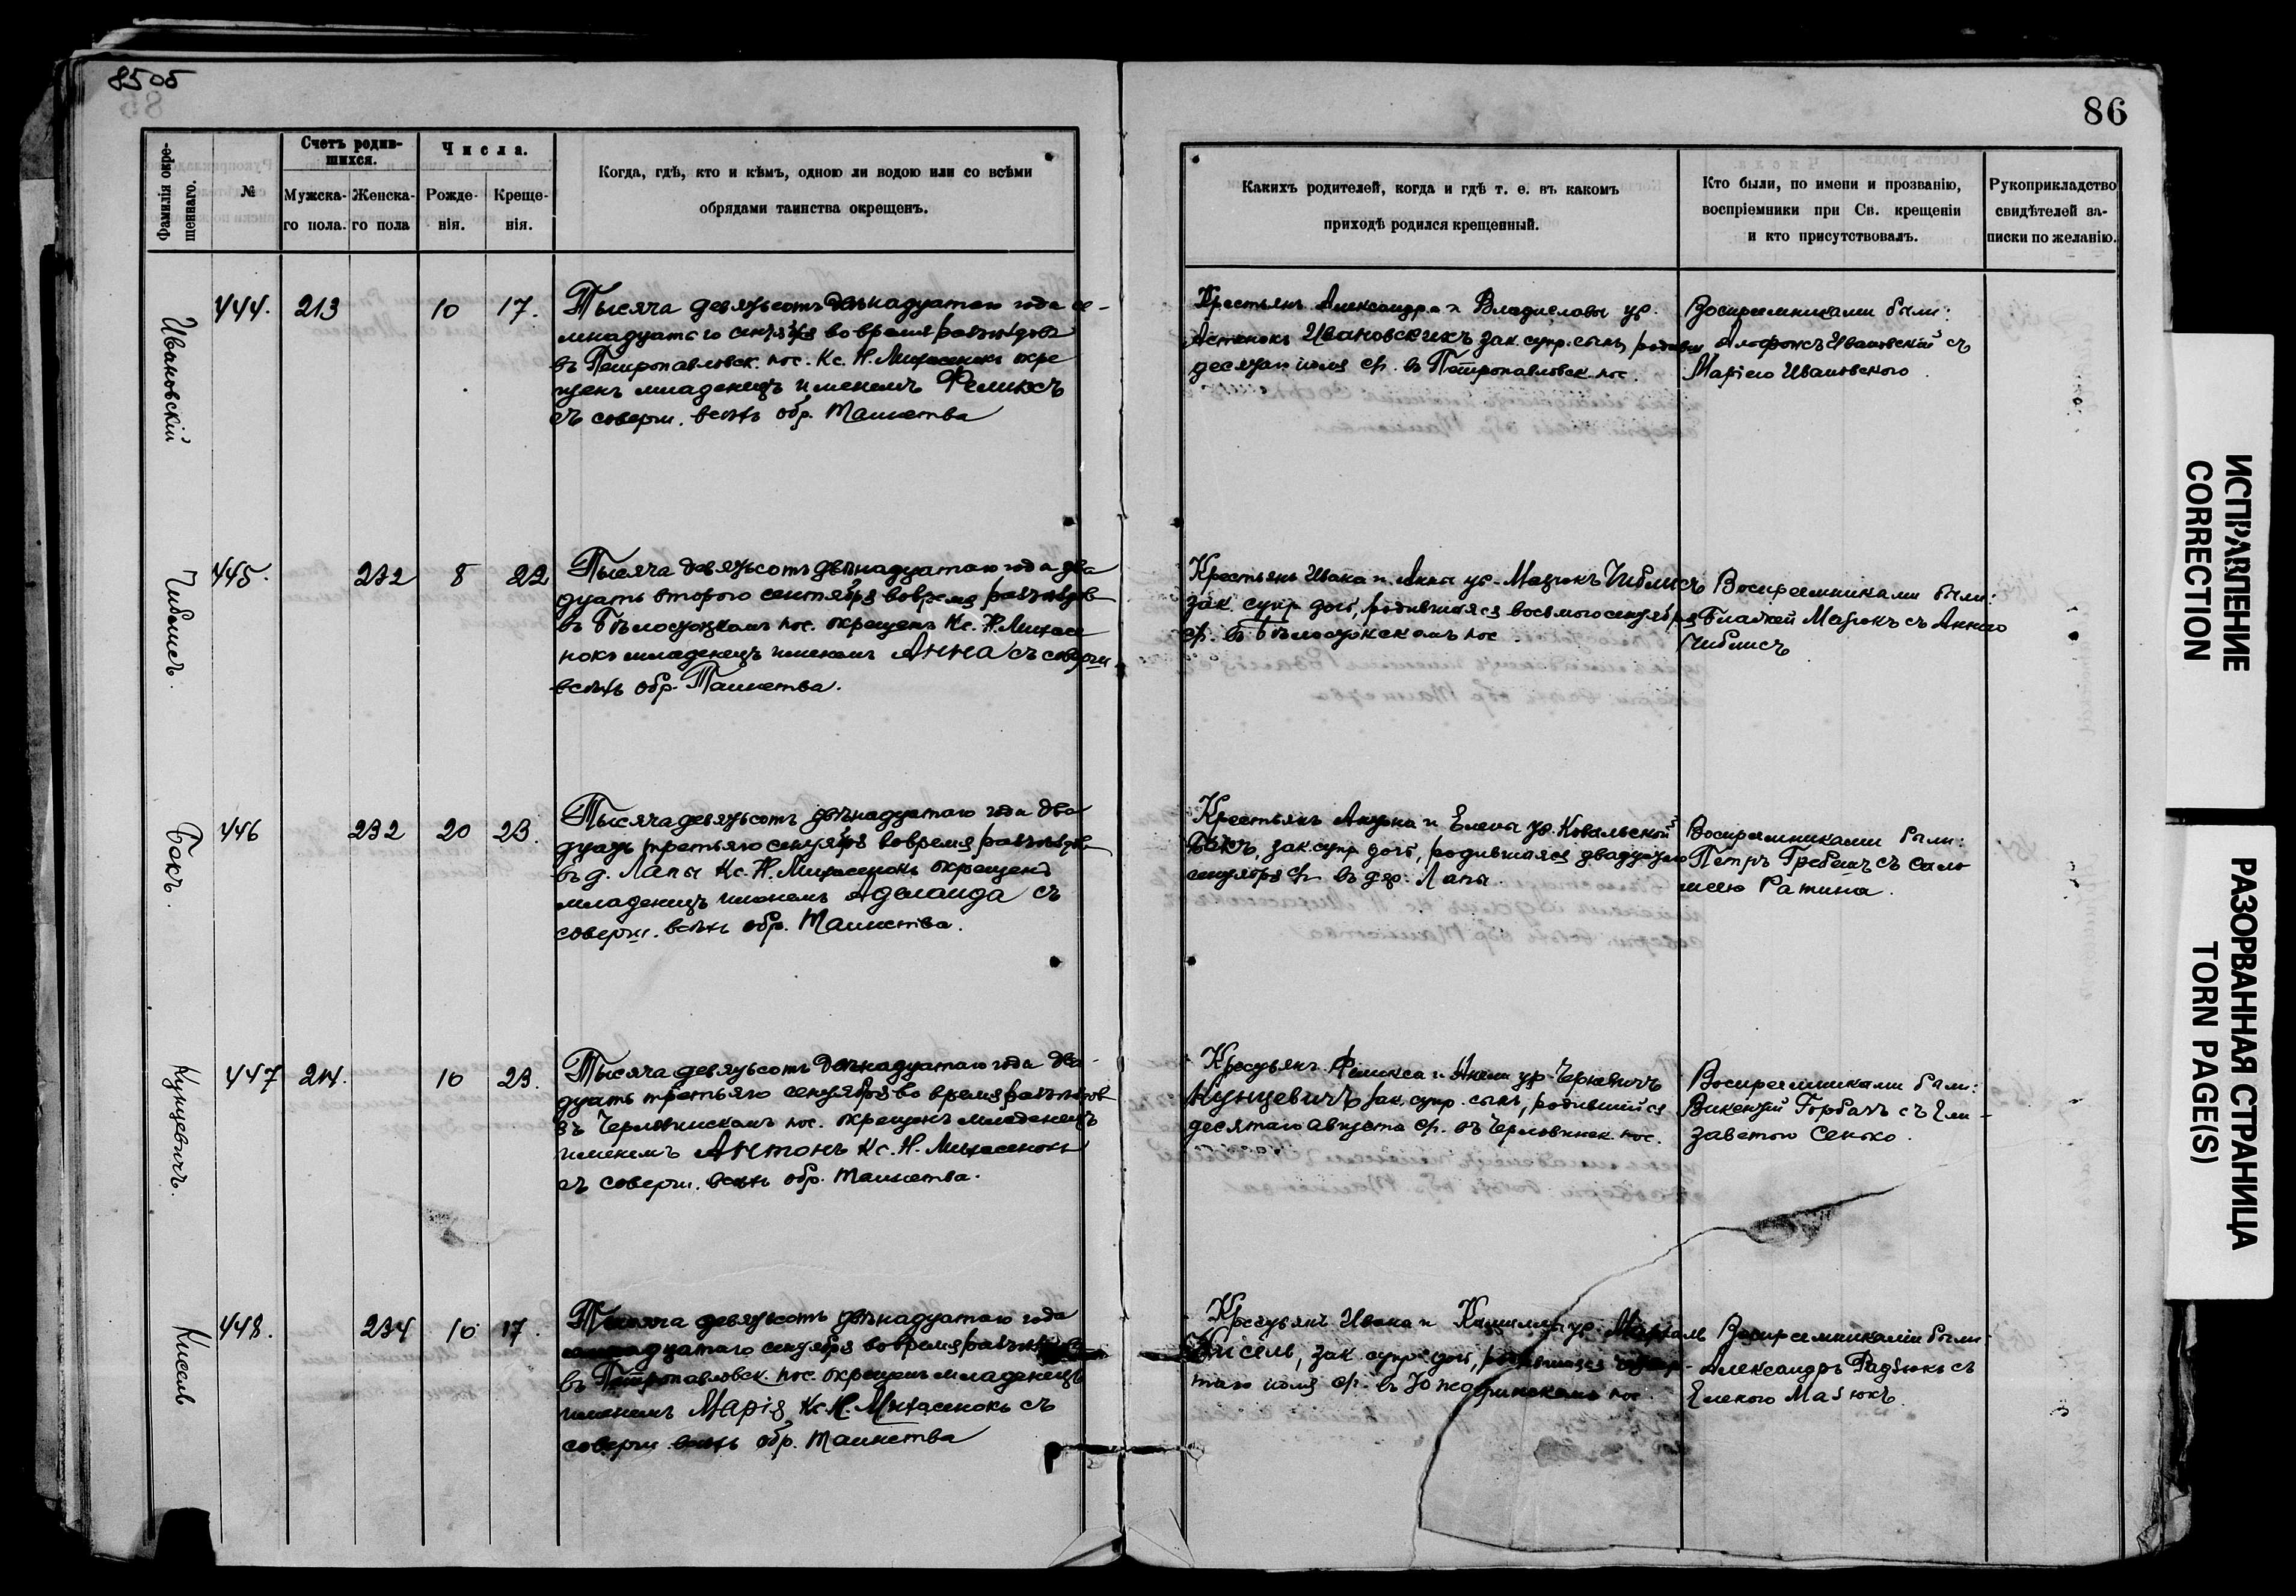 85 об
86
Фамилія окре-
щеннаго.
№
Счетъ родив-
шихся.
Мужска-
го пола.
Женска-
го пола
Числа.
Рожде-
нія.
Креще-
нія.
Когда, гдѣ, кто и кѣмъ, одною ли водою или со всѣми
обрядами таинства окрещенъ.
Какихъ родителей, когда и гдѣ т. е. въ какомъ
приходѣ родился крещенный.
Кто были, по имени и прозванію,
воспріемники при Св. крещеніи
и кто присутствовалъ.
Рукоприкладство
свидѣтелей за-
писки по желанію.
Ивановскій
444. 213 10 17.
Тысяча девятьсотъ двѣнадцатаго года се-
мнадцатаго сентября во время разъѣздовъ
въ Петропавловск. пос. Кс. Н. Михасенокъ окре
щенъ младенецъ именемъ Феликсъ
съ соверш. всѣхъ обр. Таинства
Крестьянъ Александра и Владиславы ур.
Ивановскихъ зак. супр. сынъ,
десятаго іюля с/г. въ Петропавловск. пос.
Воспріемниками были:
Альфонсъ Ивановскій съ
Маріею Ивановского
Чиблисъ.
445. 232 8 22
Тысяча девятьсотъ двѣнадцатаго года два
дцать второго сентября во время разъѣздовъ
въ пос. окрещенъ Кс. Н. Михасе
нокъ младенецъ именемъ Анна съ соверш.
всѣхъ обр. Таинства.
Крестьянъ Ивана и Анны ур. Чиблисъ
зак. супр. дочь, родившаяся восьмого сентября
с/г. въ пос.
Воспріемниками были:
съ Анною
Чиблисъ
Бакъ.
446 232 20 23.
Тысяча девятьсотъ двѣнадцатаго года два
дцать третьяго сентября во время разъѣздовъ
въ д. Лапы Кс. Н. Михасенокъ окрещенъ
младенецъ именемъ Аделаида съ
соверш. всѣхъ обр. Таинства.
Крестьянъ Антона и Елены ур. Ковальской
Бакъ, зак. супр. дочь, родившаяся двадцатаго
сентября с/г. въ дер. Лапы.
Воспріемниками были:
Петръ съ Сало
меею Ратина.
Кунцевичъ.
447 214. 10 23.
Тысяча девятьсотъ двѣнадцатаго года два-
дцать третьяго сентября во время разъѣздовъ
въ пос. окрещенъ младенецъ
именемъ Антонъ Кс. Н. Михасенокъ
съ соверш. всѣхъ обр. Таинства.
Крестьянъ Феликса и ур.
Кунцевичъ зак. супр. сынъ, родившійся
десятаго августа с/г. въ пос.
Воспріемниками были:
Викентій Горбачъ съ Ели-
заветою Сенько.
Кисель
448. 234 10 17.
Тысяча девятьсотъ двѣнадцатаго года
семнадцатаго сентября во время разъѣздовъ
въ Петропавловск. пос. окрещенъ младенецъ
именемъ Марія Кс. Н. Михасенокъ съ
соверш. всѣхъ обр. Таинства
Крестьянъ Ивана и ур.
Кисель, зак. супр. дочь, родившаяся
таго іюля с/г. въ пос.
Воспріемниками были:
Александръ Радзюкъ съ
Еленою Мазюкъ
ИСПРАВЛЕНИЕ
CORRECTION
РАЗОРВАННАЯ СТРАНИЦА
TORN PAGE(S)